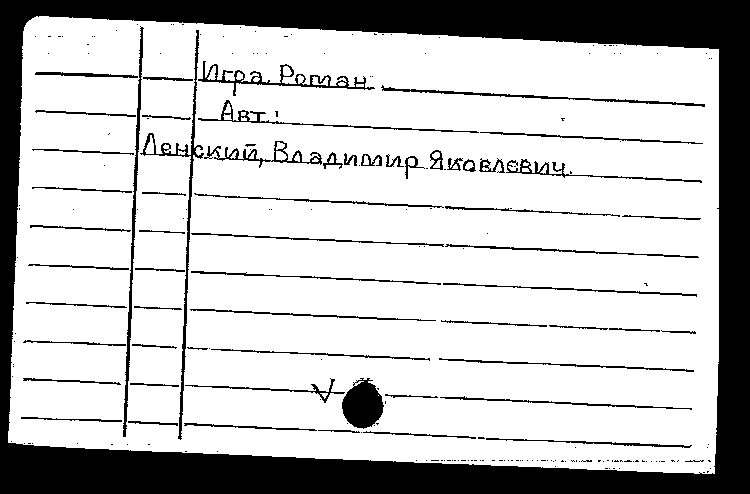 Игра. Роман.
Авт.:
Ленский, Владимир Яковлевич.